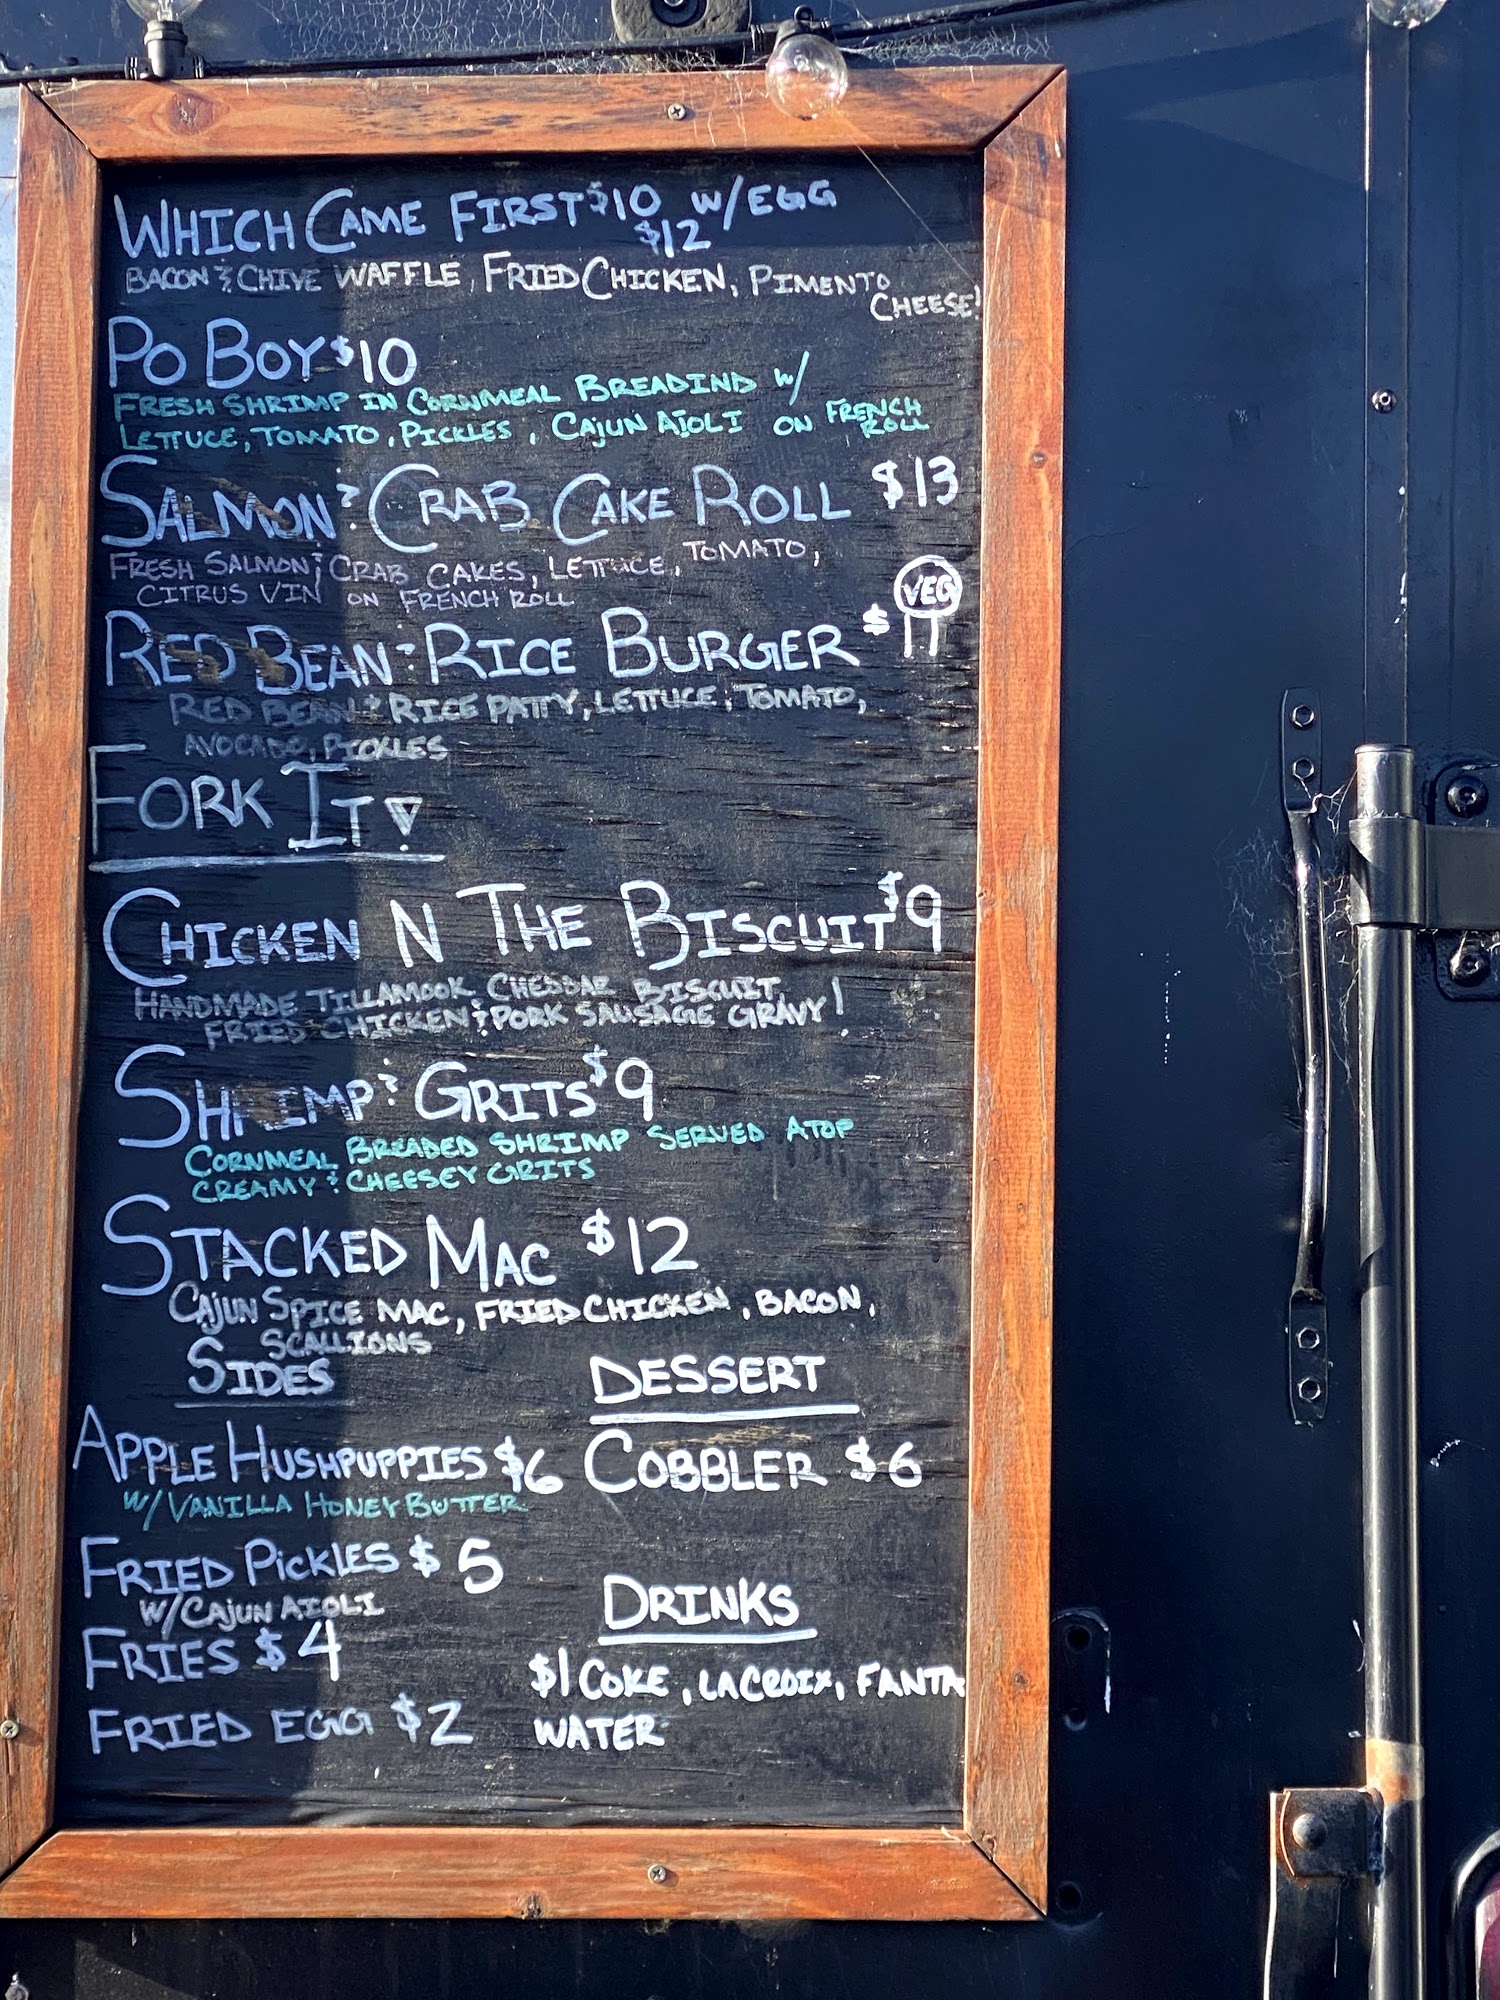 WHICH CAME FIRST $10 W/EGG
$12
BACON & CHIVE WAFFLE, FRIED CHICKEN, PIMENTO
CHEESE!
PO BOY $10
FRESH SHRIMP IN CORNMEAL BREADIND W/
LETTUCE, TOMATO, PICKLES, CAJUN AIOLI ON FRENCH
ROLL
SALMON & CRAB CAKE ROLL $13
FRESH SALMON & CRAB CAKES, LETTUCE, TOMATO,
CITRUS VIN ON FRENCH ROLL
VEG
RED BEAN & RICE BURGER $11
RED BEAN & RICE PATTY, LETTUCE, TOMATO,
AVOCADO, PICKLES
FORK IT!
CHICKEN N THE BISCUIT $9
HANDMADE TILLAMOOK CHEDDAR BISCUIT
FRIED CHICKEN & PORK SAUSAGE GRAVY!
SHRIMP & GRITS $9
CORNMEAL BREADED SHRIMP SERVED ATOP
CREAMY & CHEESEY GRITS
STACKED MAC $12
CAJUN SPICE MAC, FRIED CHICKEN, BACON,
SCALLIONS
SIDES
APPLE HUSHPUPPIES $6
W/VANILLA HONEY BUTTER
FRIED PICKLES $5
W/CAJUN AIOLI
FRIES $4
FRIED EGG $2
DESSERT
COBBLER $6
DRINKS
$1 COKE, LACROIX, FANTA
WATER